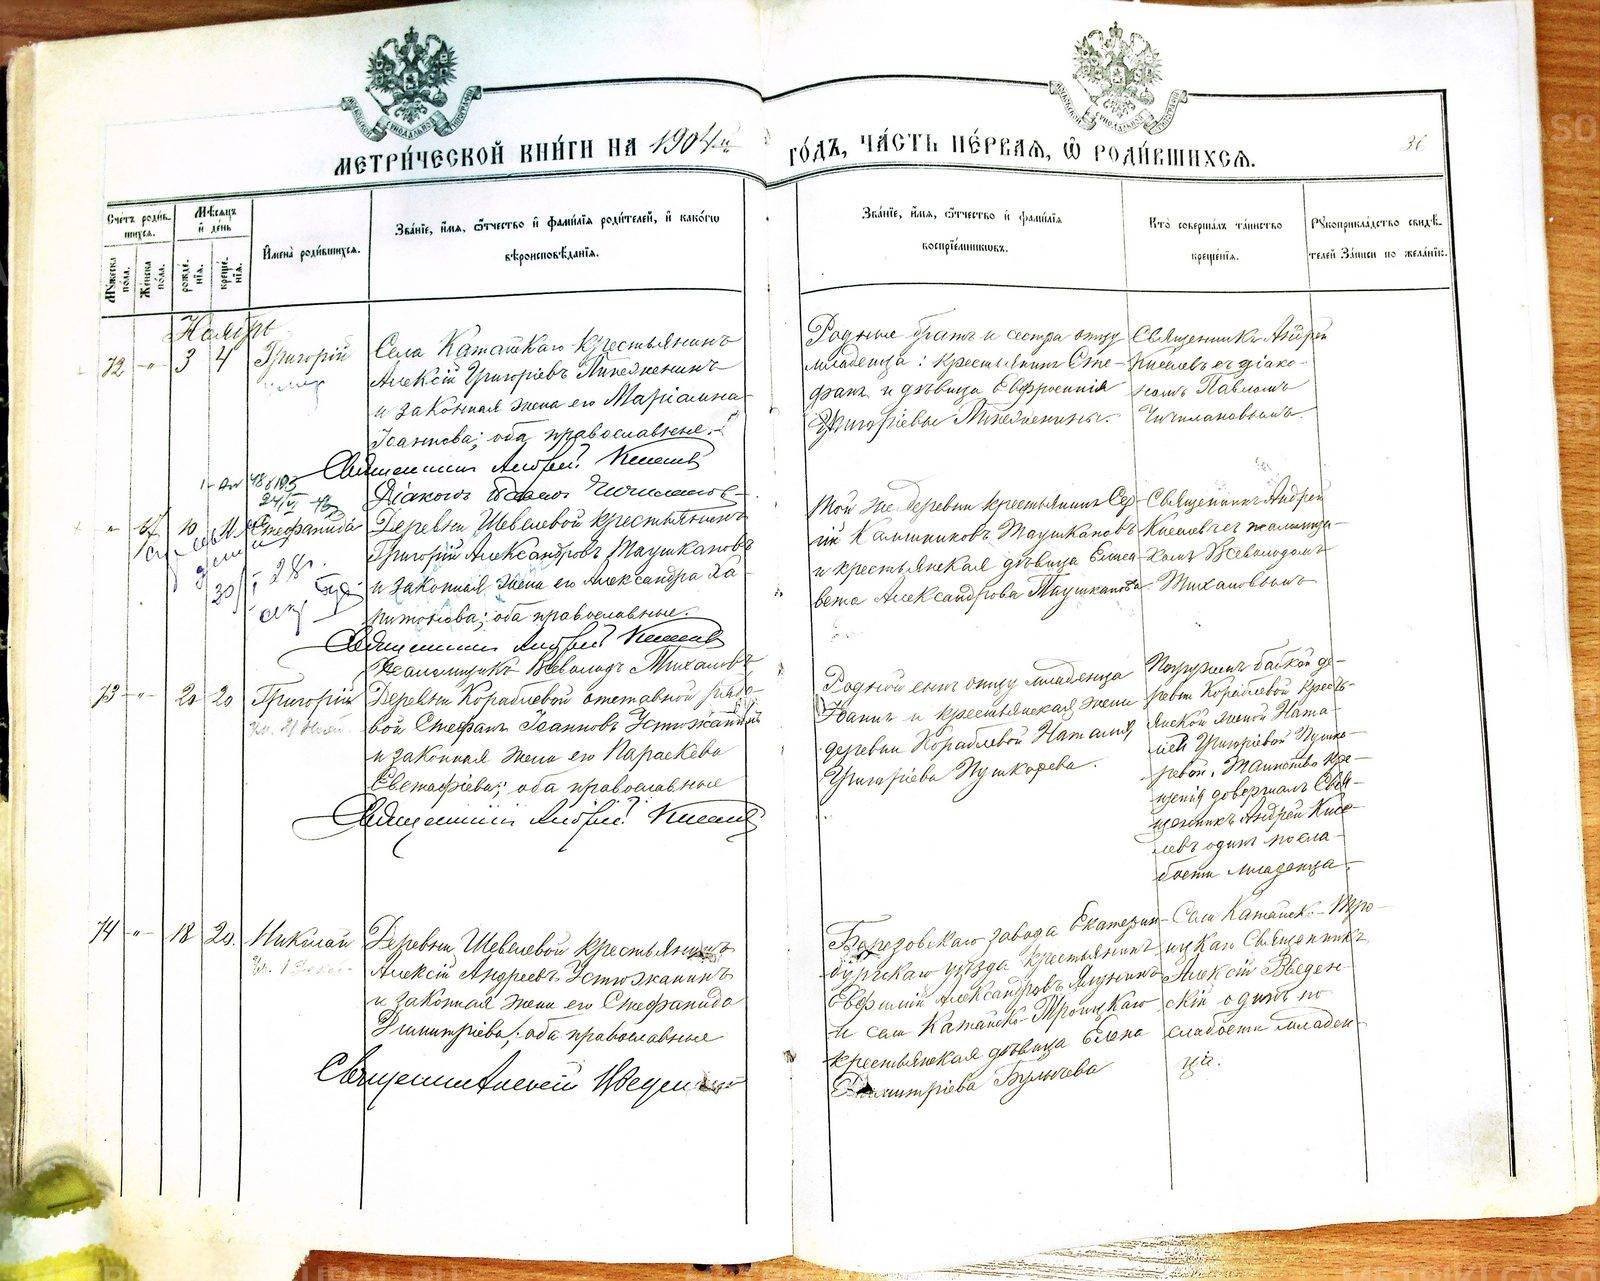 МЕТРИ́ЧЕСКОЙ КНИ́ГИ НА 1904й ГО́ДЪ, ЧА́СТЬ ПЕ́РВАЯ, Ѡ҆ РОДИ́ВШИХСЯ.
36
Сче́тъ роди́в-
шихся.
Му́жеска по́ла.
Же́нска по́ла.
Мѣ́сяцъ
и҆ де́нь
рожде́-
нїя.
креще́-
нїя.
И҆мена̀ роди́вшихся.
Зва́нїе, и҆́мя, ѻ҆́тчество и҆ фами́лїя роди́телей, и҆ како́гѡ
вѣроисповѣ́данїя.
Зва́нїе, и҆́мя, ѻ҆́тчество и҆ фами́лїя
воспрїе́мникѡвъ.
Кто̀ соверша́лъ та́инство
креще́нїя.
Рꙋкоприкла́дство свидѣ́-
телей за́писи по жела́нїю.
Ноябрь
72 -"- 3 4 Григорій
умер
Села Катайскаго крестьянинъ
Алексій Григоріевъ
и законная жена его Маріамна
Іоаннова; оба православные.
Священникъ Андрей Киселевъ
Діаконъ Павелъ Чичилановъ
Родные братъ и сестра отцу
младенца: крестьянинъ Сте-
фанъ и дѣвица Евфросинія
Григоріевы
Священникъ Андрей
Киселевъ съ діако-
номъ Павломъ
Чичилановымъ
" 67 10 11 Стефанида
Деревни Шевелевой крестьянинъ
Григорій Александровъ Таушкановъ
и законная жена его Александра Ха-
ритонова; оба православные.
Священникъ Андрей Киселевъ
Псаломщикъ Всеволодъ Тихановъ
Той же деревни крестьянинъ Сер-
гій Таушкановъ
и крестьянская дѣвица Елиса-
вета Александрова Таушканова
Священникъ Андрей
Киселевъ съ псаломщи-
комъ Всеволодомъ
Тихановымъ
73 -"- 20 20 Григорій
Деревни Кораблевой отставной рядо-
вой Стефанъ Іоанновъ Устюжанинъ
и законная жена его Параскева
Евстафіева; оба православные
Священникъ Андрей Киселевъ
Родной сынъ отцу младенца
Іоаннъ и крестьянская жена
деревни Кораблевой Наталія
Григоріева Пушкарева.
Погружен бабкой де-
ревни Кораблевой кресть-
янской женой Ната-
ліей Григоріевой Пушка-
ревой. Таинство кре-
щенія довершалъ Свя-
щенникъ Андрей Кисе-
левъ одинъ по сла-
бости младенца.
74 -"- 18 20. Николай
Деревни Шевелевой крестьянинъ
Алексій Андреевъ Устюжанинъ
и законная жена его Стефанида
Димитріева; оба православные
Священникъ Алексій Введенскій
Березовскаго завода Екатерин-
бургскаго уѣзда крестьянинъ
Евфимій Александровъ
и села Катайско-Троицкаго
крестьянская дѣвица Елена
Димитріева Булычева
Села Катайско-Тро-
ицкаго Священникъ
Алексій Введен-
скій одинъ по
слабости младен-
ца.